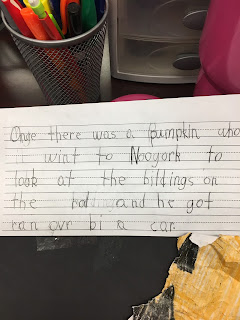 Onge there was a pumpkin who
wint to Noogork to
look at the bildings on
the and he got
ran ovr bi a car.